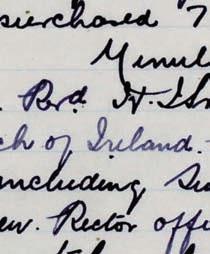 purchased 7
Minut
Revd. H.
ch of Ireland.
including Su
ev. Rector offi